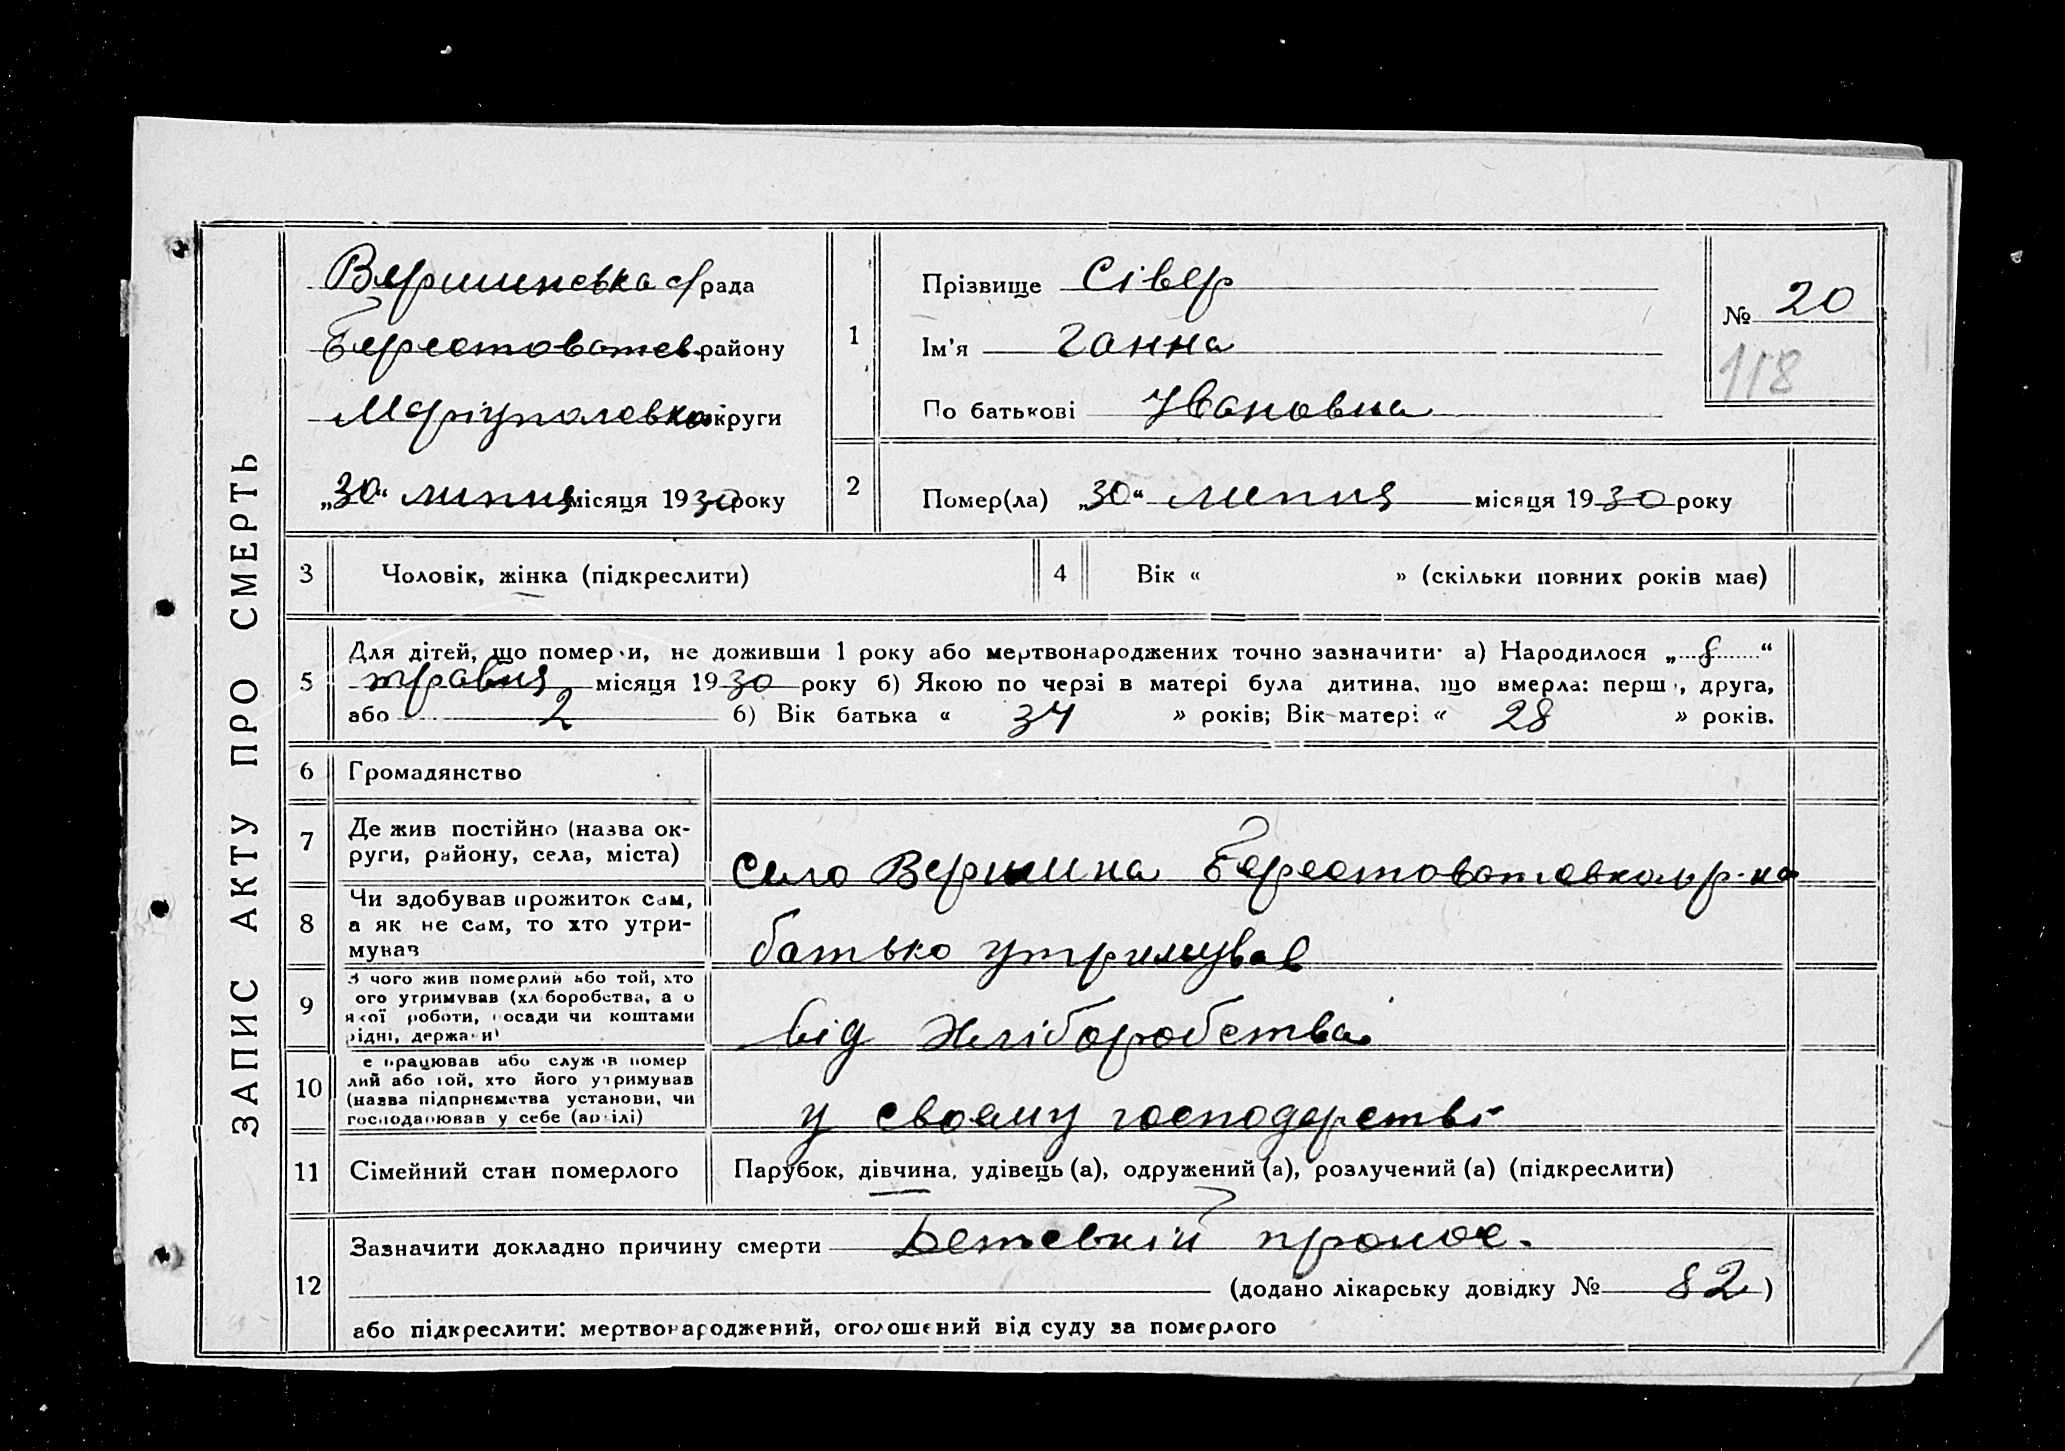 ЗАПИС АКТУ ПРО СМЕРТЬ
Вершинська с/рада
Берестоватсв. району
Маріупольвко округи
„30“ липня місяця 1930 року
1
Прізвище Сівер
Ім'я Ганна
По батькові Ивановна
№ 20
118
2
Помер(ла) „30“ липня місяця 1930 року
3 Чоловік, жінка (підкреслити)
4 Вік « » (скільки повних років має)
5
Для дітей, що помер и, не доживши 1 року або мертвонароджених точно зазначити· а) Народилося „ 8 “
травня місяця 1930 року б) Якою по черзі в матері була дитина, що вмерла: перш , друга,
або 2 б) Вік батька « 34 » років; Вік матері « 28 » років.
6 Громадянство
7 Де жив постійно (назва ок-
руги, району, села, міста)
Село Вершина Берестоватовкаьр-на
8 Чи здобував прожиток сам,
а як не сам, то хто утри-
мував
батько утримував
9 З чого жив померлий або той, хто
ого утримував (хл боробства, а о
якої роботи, посади чи коштами
рідні, держа и)
від хліборобства
10 е працював або служ в помер
лий або той, хто його утримував
(назва підприємства установи, чи
господарював у себе (артілі)
у своєму господарстві
11 Сімейний стан померлого
Парубок, дівчина, удівець (а), одружений (а), розлучений (а) (підкреслити)
12
Зазначити докладно причину смерти Детскій пронос.
(додано лікарську довідку № 82)
або підкреслити: мертвонароджений, оголошений від суду за померлого